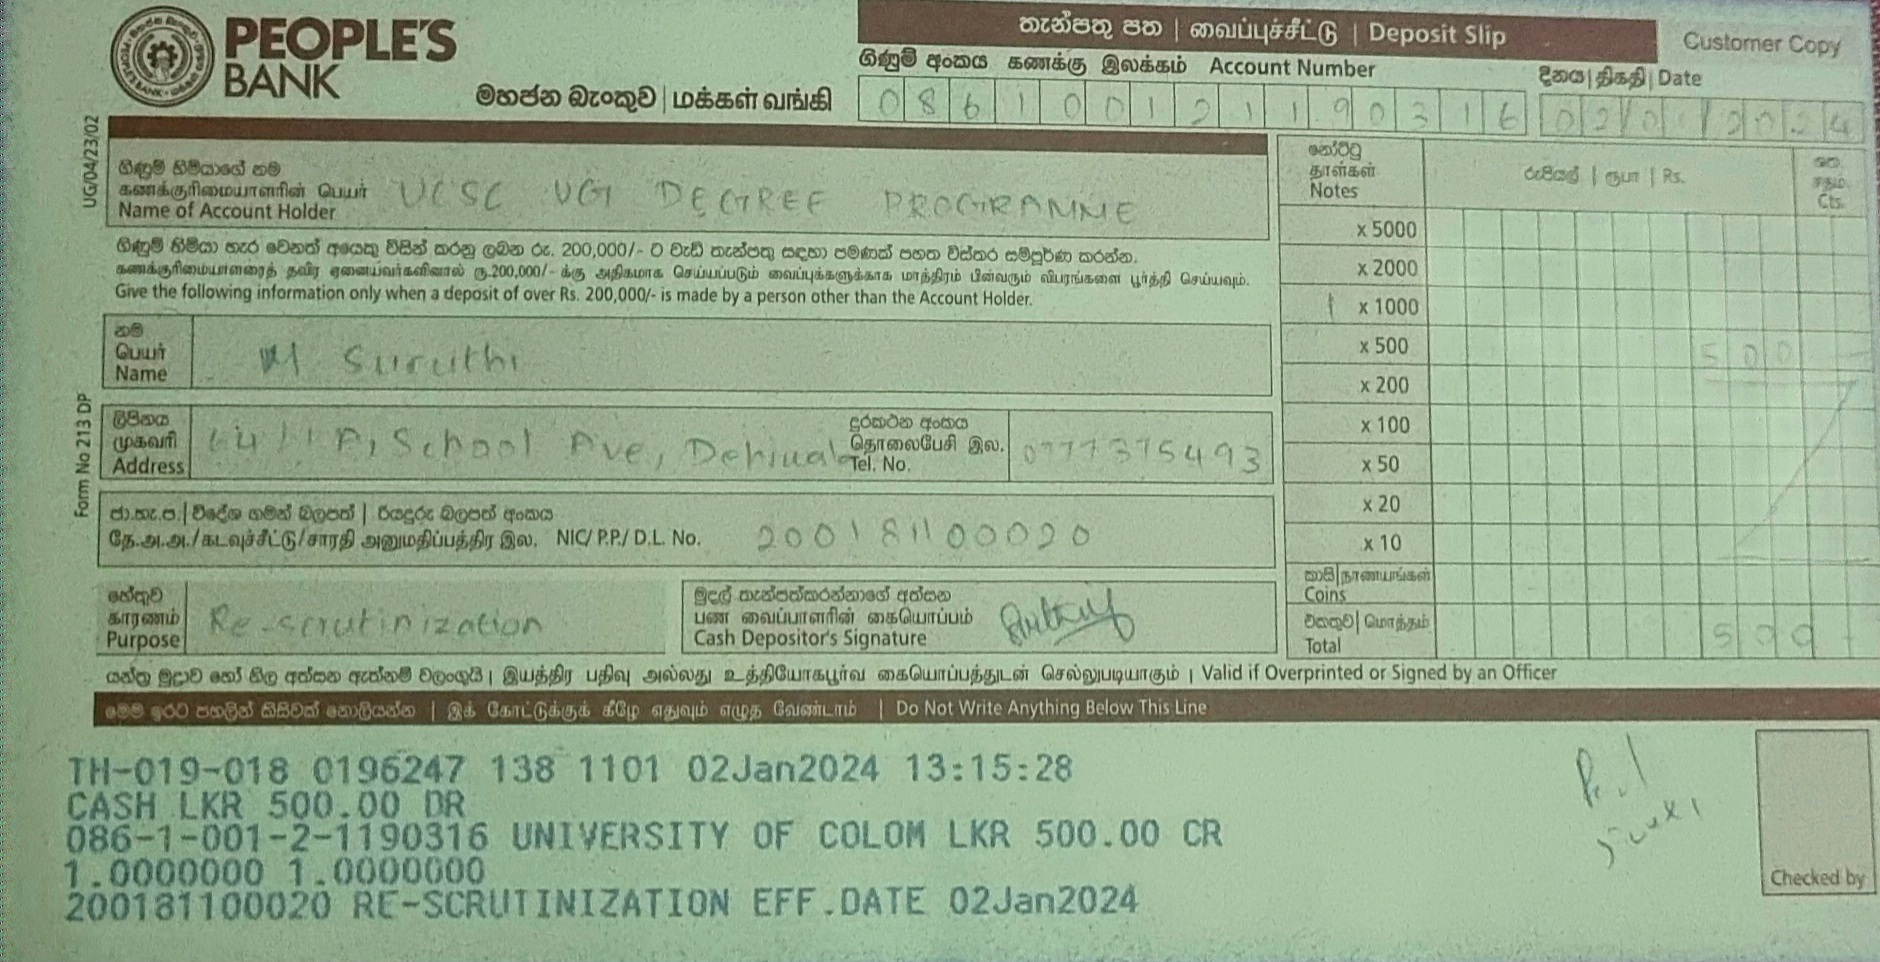 PEOPLE'S
BANK
මහජන බැංකුව | மக்கள் வங்கி
තැන්පතු පත | வைப்புச்சீட்டு | Deposit Slip
Customer Copy
ගිණුම් අංකය கணக்கு இலக்கம் Account Number
දිනය | திகதி | Date
086100121190316
UG/04/23/02
ගිණුම් හිමියාගේ නම
கணக்குரிமையாளரின் பெயர்
Name of Account Holder
UCSC UG DEGREE PROGRAMME
ගිණුම් හිමියා හැර වෙනත් අයෙකු විසින් කරනු ලබන රු. 200,000/- ට වැඩි තැන්පතු සඳහා පමණක් පහත විස්තර සම්පූර්ණ කරන්න.
கணக்குரிமையாளரைத் தவிர ஏனையவர்களினால் ரூ.200,000/- க்கு அதிகமாக செய்யப்படும் வைப்புக்களுக்காக மாத்திரம் பின்வரும் விபரங்களை பூர்த்தி செய்யவும்.
Give the following information only when a deposit of over Rs. 200,000/- is made by a person other than the Account Holder.
නම
பெயர்
Name
M Suruthi
Form No 213 DP
ලිපිනය
முகவரி
Address
School Ave, Dehiwala
දුරකථන අංකය
தொலைபேசி இல.
Tel. No.
0777375493
ජා.හැ.ප. | විදේශ ගමන් බලපත් | රියදුරු බලපත් අංකය
தே.அ.அ./கடவுச்சீட்டு/சாரதி அனுமதிப்பத்திர இல. NIC/ P.P./ D.L. No.
200181100020
හේතුව
காரணம்
Purpose
Re-scrutinization
මුදල් තැන්පත්කරන්නාගේ අත්සන
பண வைப்பாளரின் கையொப்பம்
Cash Depositor's Signature
නෝට්ටු
தாள்கள்
Notes
රුපියල් | ரூபா | Rs.
ශත
சதம்
Cts.
x 5000
x 2000
x 1000
x 500 500
x 200
x 100
x 50
x 20
x 10
කාසි | நாணயங்கள்
Coins
එකතුව | மொத்தம்
Total 500
යන්ත්‍ර මුද්‍රාව හෝ නිල අත්සන ඇත්නම් වලංගුයි | இயந்திர பதிவு அல்லது உத்தியோகபூர்வ கையொப்பத்துடன் செல்லுபடியாகும் | Valid if Overprinted or Signed by an Officer
මෙම ඉරට පහලින් කිසිවක් නොලියන්න | இக் கோட்டுக்குக் கீழே எதுவும் எழுத வேண்டாம் | Do Not Write Anything Below This Line
TH-019-018 0196247 138 1101 02Jan2024 13:15:28
CASH LKR 500.00 DR
086-1-001-2-1190316 UNIVERSITY OF COLOM LKR 500.00 CR
1.0000000 1.0000000
200181100020 RE-SCRUTINIZATION EFF.DATE 02Jan2024
Checked by